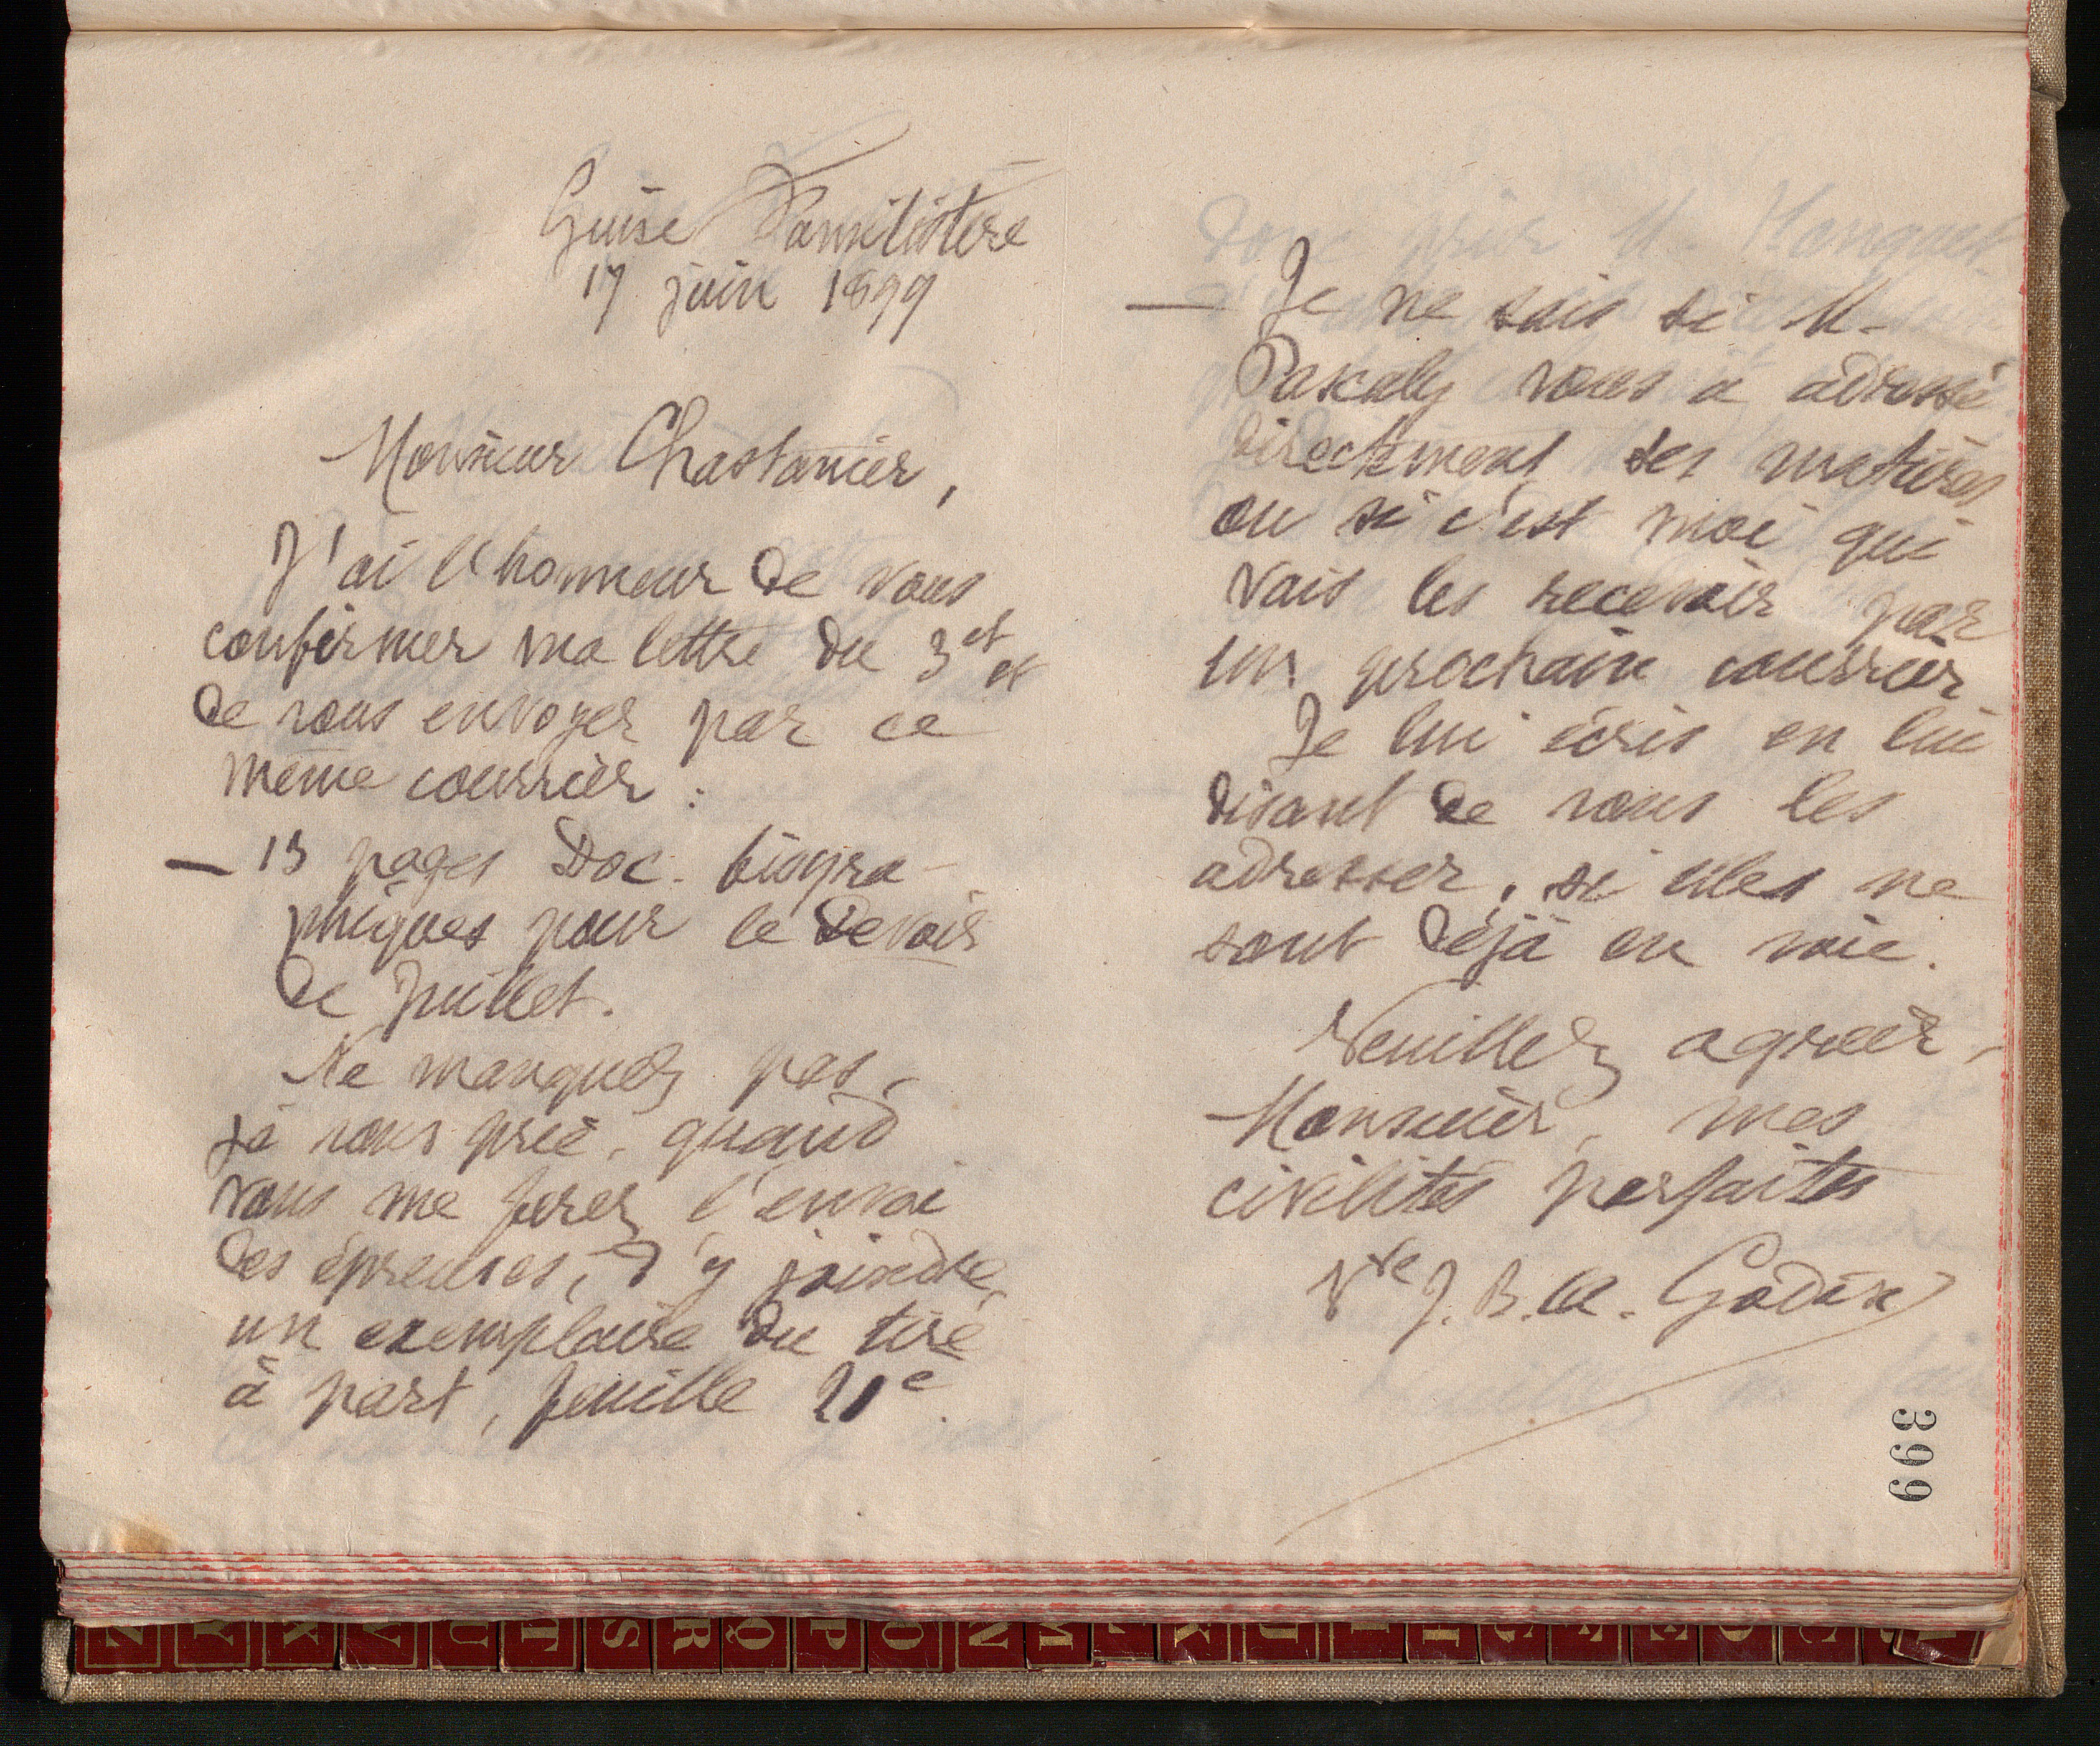 Guise Familistère
17 juin 1899
Monsieur Chastanier,
J'ai l'honneur de vous
confirmer ma lettre du 3 ct et
de vous envoyer par ce
même courrier :
— 13 pages Doc. biogra-
phiques pour le Devoir
de Juillet.
Ne manquez pas,
je vous prie, quand
vous me ferez l'envoi
des épreuves, d'y joindre
un exemplaire du tiré
à part, feuille 21e.
— Je ne sais si M.
Pascaly vous a adressé
directement ses matières
ou si c'est moi qui
vais les recevoir par
un prochain courrier
Je lui écris en lui
disant de vous les
adresser, si elles ne
sont déjà en voie.
Veuillez agréer,
Monsieur, mes
civilités parfaites
Vve J. B. A. Godin
399
Z Y X V U T S R Q P O N M L K J I H G F E D C